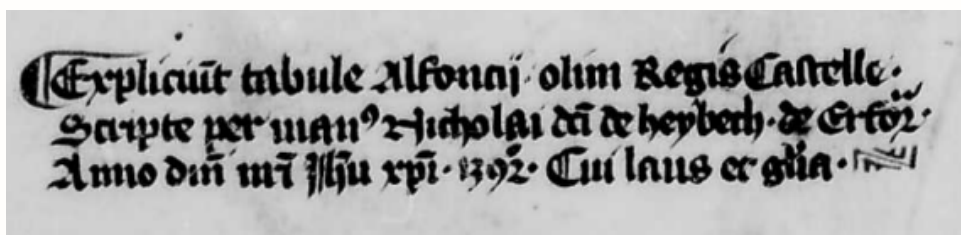 ¶Expliciūt tabule Alfoncij · olim Regis Castelle ·
Scripte per manꝰ Nicholai dc̄i de heybech · de Erfor̄ ·
Anno dn̄i nr̄i Jhū xp̄i · 1392 · Cui laus et gl̄ia ·